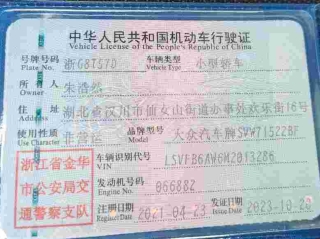 中华人民共和国机动车行驶证
Vehicle License of the People's Republic of China
号牌号码 浙G8T57D 车辆类型 小型轿车
Plate No. Vehicle Type
所有人 朱浩然
Owner
住址 湖北省汉川市仙女山街道办事处欢乐街16号
Address
使用性质 非营运 品牌型号 大众汽车牌SVW71522BF
Use Character Model
车辆识别代号
VIN
浙江省金华
市公安局交
通警察支队
发动机号码 066882
Engine No.
注册日期 2021-04-23 发证日期 2023-10-20
Register Date Issue Date